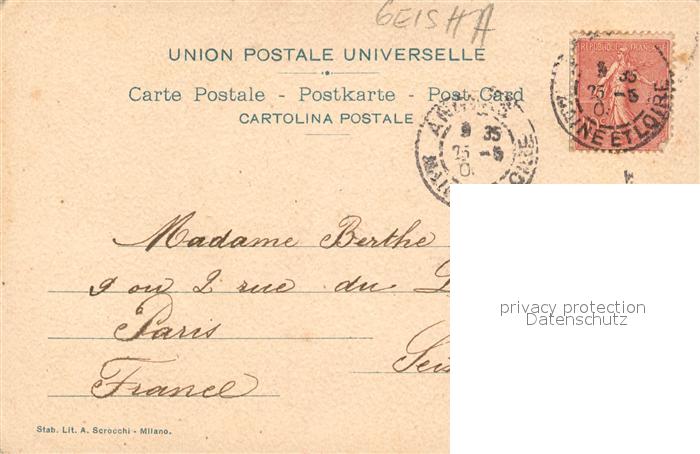 GEISHA
UNION POSTALE UNIVERSELLE
Carte Postale - Postkarte - Post Card
CARTOLINA POSTALE
REPUBLIQUE FRANÇAISE
9 35
25 - 5
MAINE ET LOIRE
9 35
25 - 5
Madame Berthe
9 ou 2 rue du
Paris
France
privacy protection
Datenschutz
Stab. Lit. A. Scrocchi - Milano.